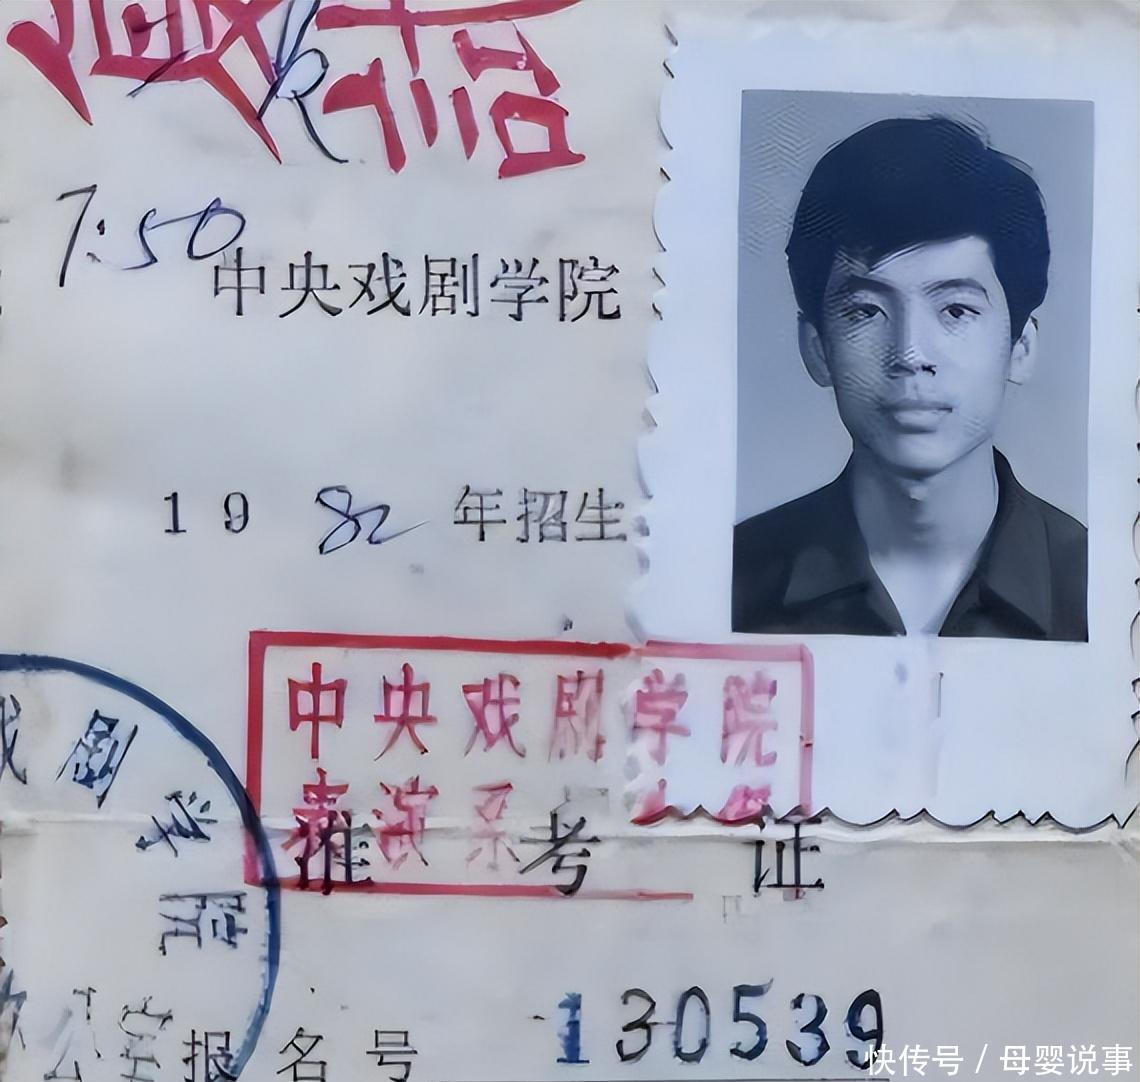 7:50
中央戏剧学院
1982年招生
中央戏剧学院
表演系
准考证
剧学院
报名号 130539
快传号 / 母婴说事